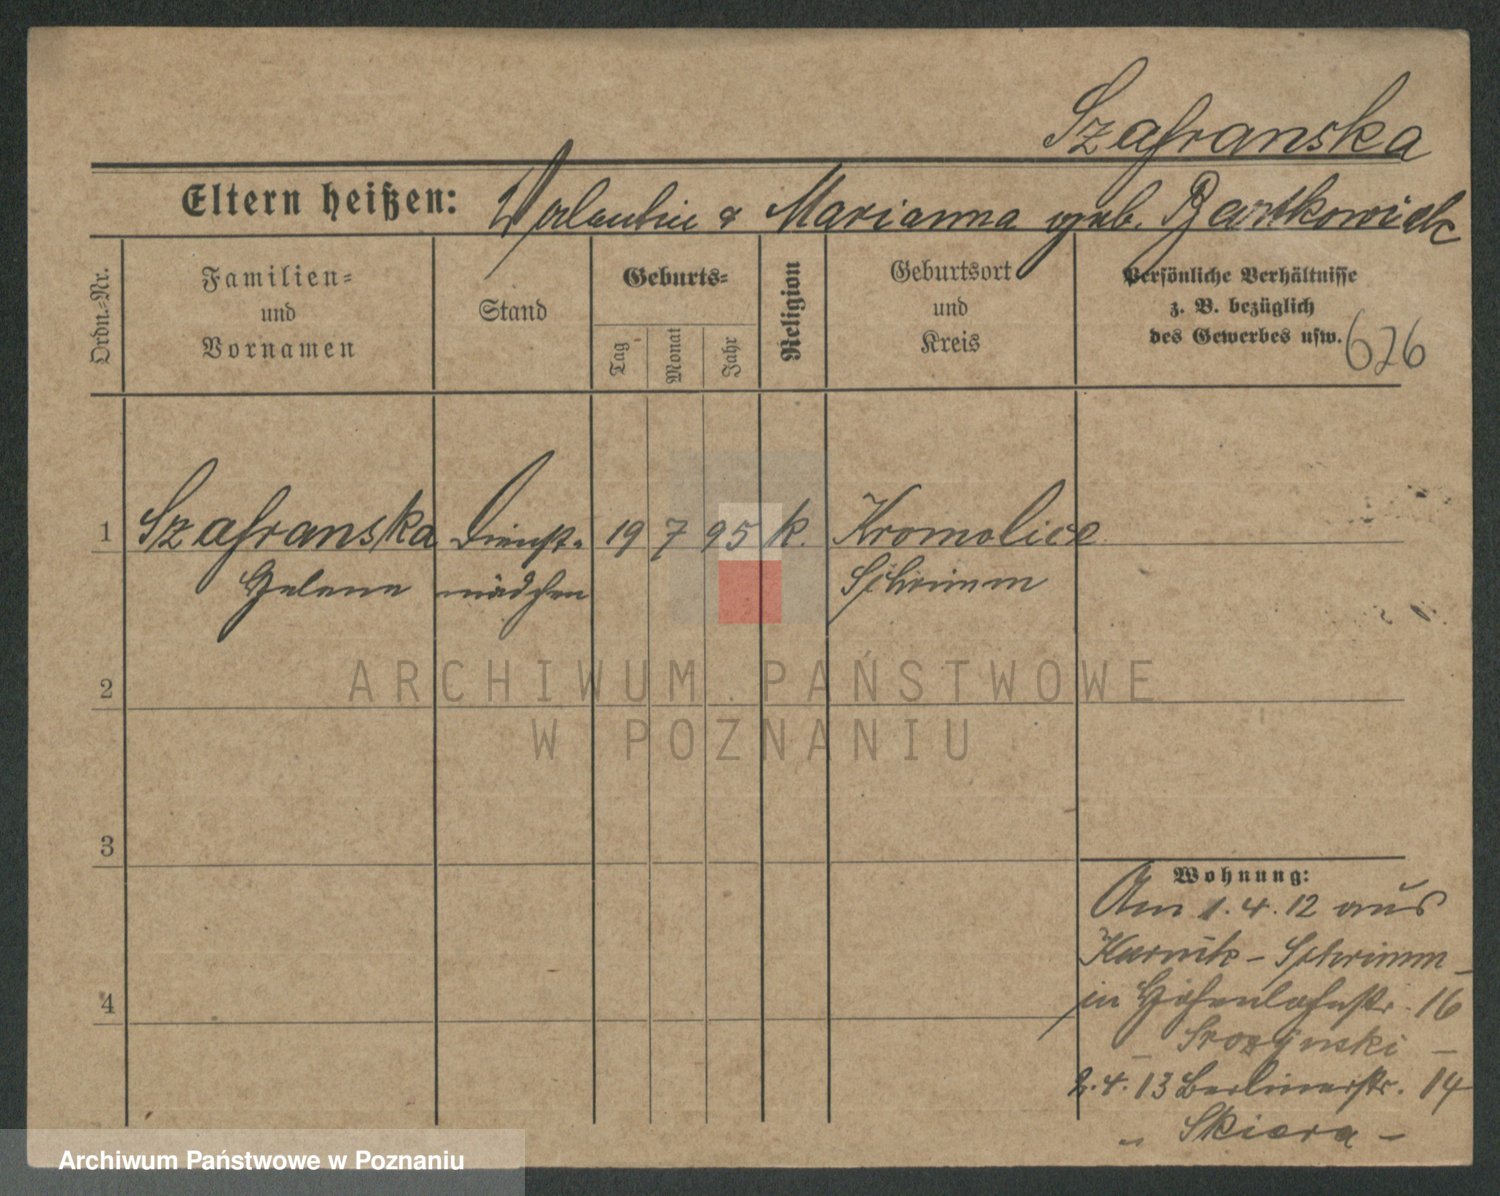 Szafranska
Eltern heißen: Valentin & Marianna geb. Bartkowiak
Ordn.=Nr.
Familien=
und
Vornamen
Stand
Geburts=
Tag
Monat
Jahr
Religion
Geburtsort
und
Kreis
Persönliche Verhältnisse
z. B. bezüglich
des Gewerbes usw.
626
1 Szafranska Dienst- 19 7 95 k. Kromolice
Helene mädchen Schrimm
2
ARCHIWUM PAŃSTWOWE
W POZNANIU
3
Wohnung:
Am 1.4.12 aus
Kurnik - Schrimm -
4
in Hohenlohestr. 16
2.4.13 Berlinerstr. 14
" Skiera -
Archiwum Państwowe w Poznaniu